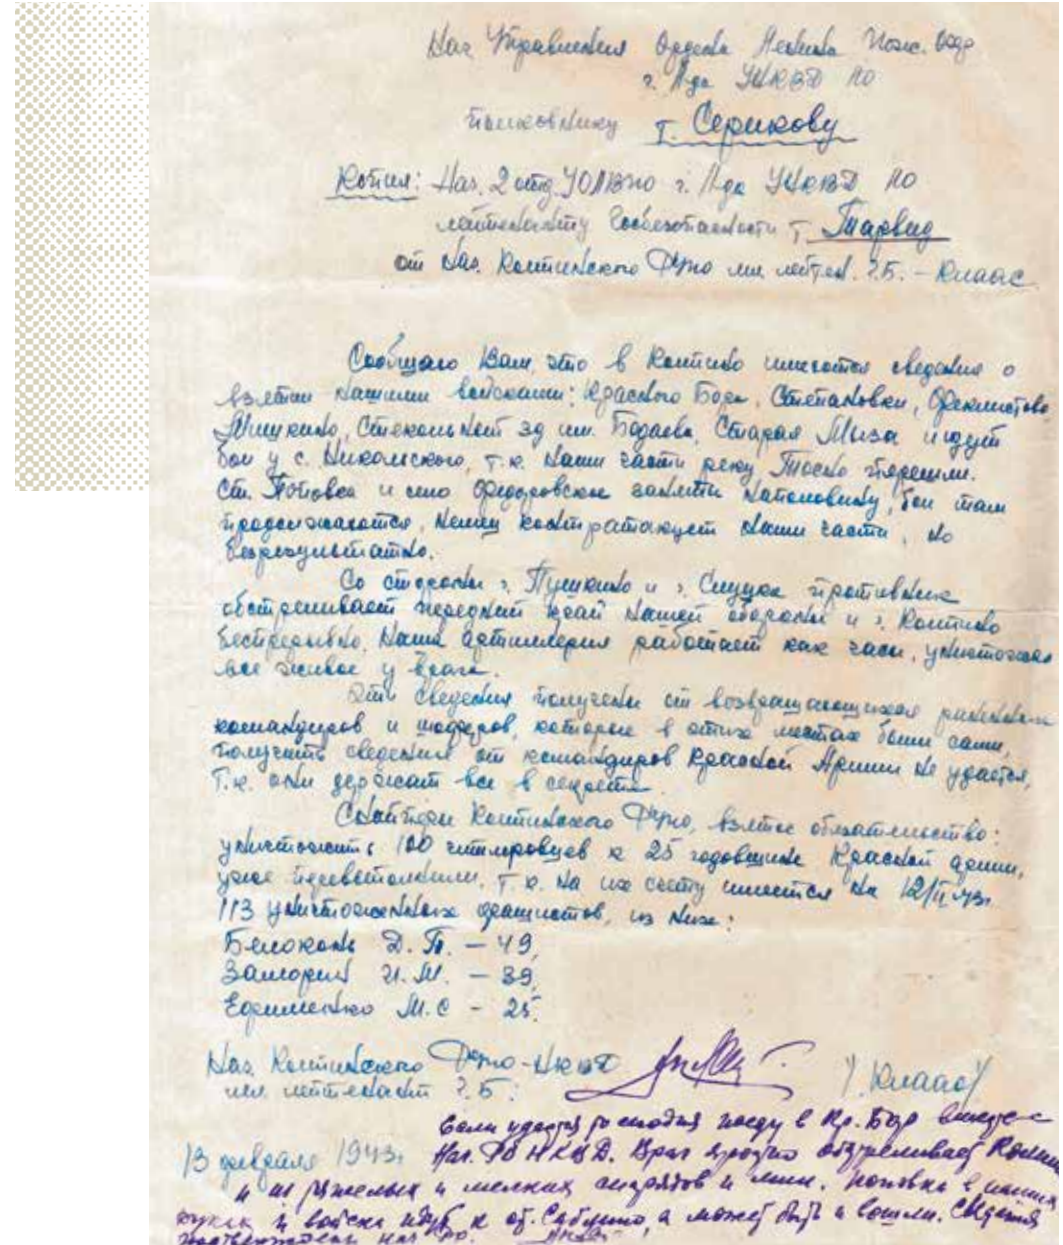 Нач. Управления Ордена Ленина Пож. Охр.
г. Л-да УНКВД ЛО
полковнику т. Серикову
Копия: Нач. 2 отд. УОЛВПО г. Л-да УНКВД ЛО
лейтенанту Госбезопасности т. Тарвид
от Нач. Колпинского мл. лейтен. Г.Б. – Клаас
Сообщаю Вам, что в Колпино имеются сведения о
взятии нашими войсками: Красного Бора, Степановки, Феклистово,
Мишкино, Стекольный зд им. Бадаева, Старая Мыза и идут
бои у с. Никольского, т.к. наши части реку Тосно перешли.
Ст. Поповка и село Федоровское заняты наполовину, бои там
продолжаются, немец контратакует наши части, но
безрезультатно.
Со стороны г. Пушкино и г. Слуцка противник
обстреливает передний край нашей обороны и г. Колпино
беспрерывно. Наша артиллерия работает как часы, уничтожая
все живое у врага.
Эти сведения получены от возвращающихся раненых
командиров и шоферов, которые в этих местах были сами,
получить сведения от командиров Красной Армии не удается,
т.к. они держат все в секрете.
Снайперы Колпинского взятое обязательство:
уничтожить 100 гитлеровцев к 25 годовщине Красной армии,
уже перевыполнили, т.к. на их счету имеется на 12/II-43г.
113 уничтоженных фашистов, из них:
Белоконь Д. П. – 49,
Заморин И. М. – 39,
Ефименко М. С – 25.
Нач. Колпинского НКВД
мл. лейтенант Г.Б. /Клаас/
Если удастся сегодня поеду в Кр. Бор вместе с
13 февраля 1943г. Нач. РО НКВД. Враг обстреливает Колпино
и из тяжелых и мелких снарядов и мин. Поповка в наших
руках и войска идут к ст. Саблино, а может быть и вошли. Сведения